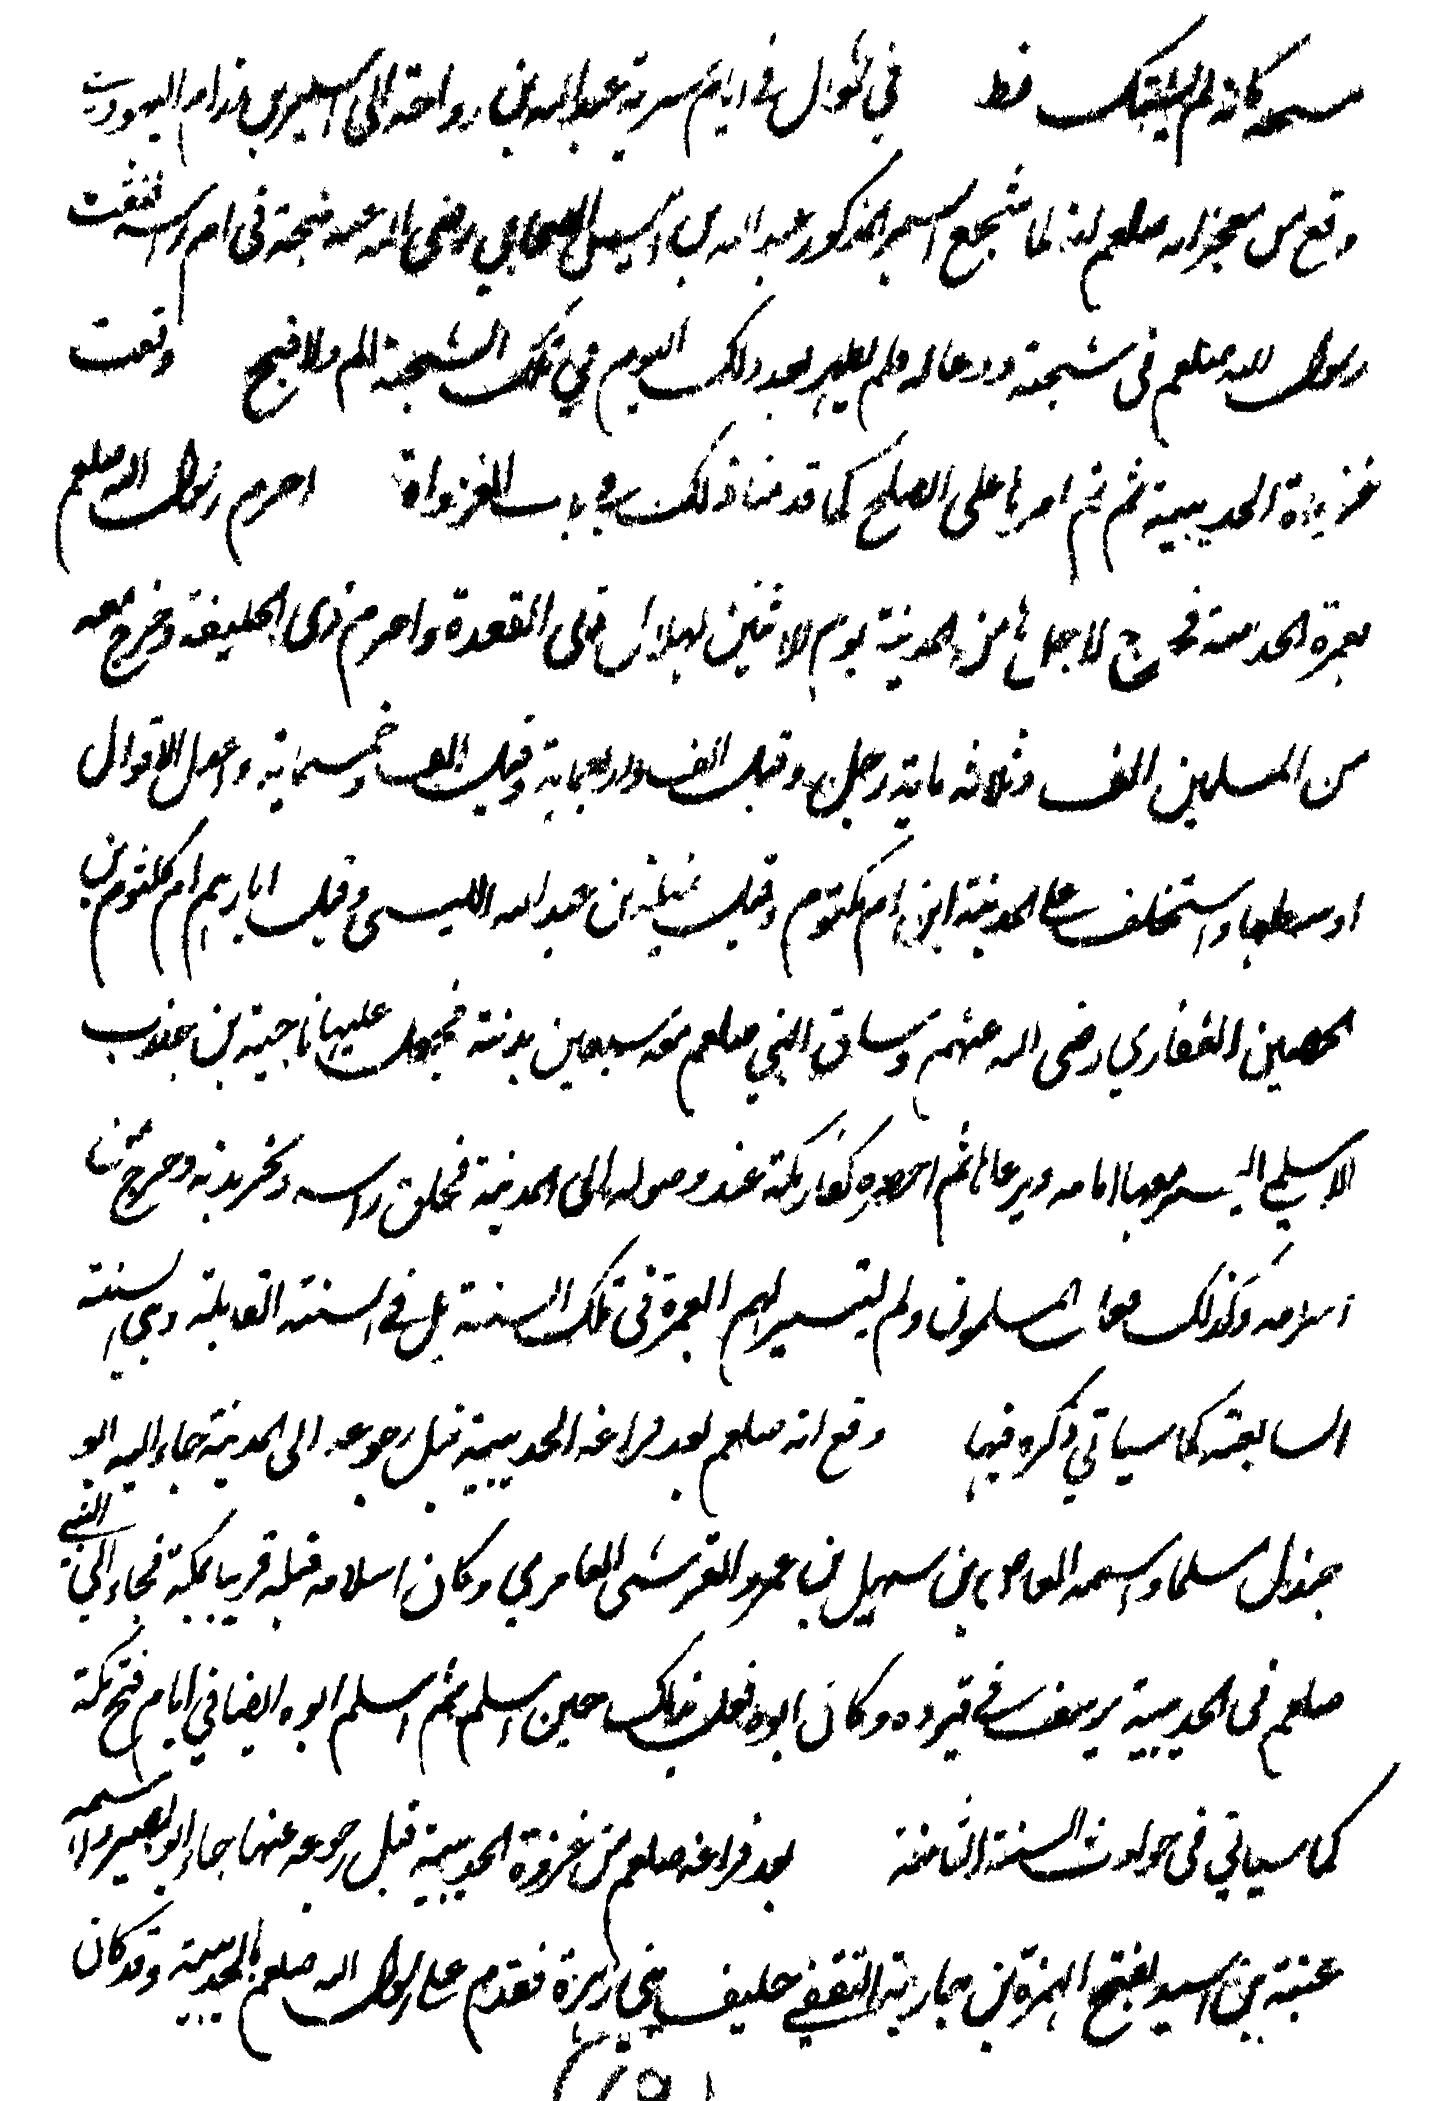 سمه كانه لم يشتك قط في طوال في ايام سرية عبد الله بن رواحة الى اسير بن رزام اليهودي
وقع من معجزاته صلعم لنه لما شجع اسير المذكور عبد الله بن انيس الصحابي رضي الله عنه شجة في ام راسه نفث
رسول الله صلعم في شجته ودعا له فلم يظهر بعد ذلك اليوم في تلك الشجة الم ولا قيح وقعت
غزوة الحديبية ثم تم امرها على الصلح كما قدمنا ذلك في باب الغزواة احرم رسول الله صلعم
بعمرة الحديبية فخرج لاجلها من المدينة يوم الاثنين لهلال ذي القعدة واحرم ذي الحليفة وخرج معه
من المسلمين الف وثلاثه ماية رجل وقيل الف واربعماية وقيل الف وخمسماية واعدل الاقوال
اوسطها واستخلف على المدينة ابن ام مكتوم وقيل نميلة بن عبد الله الليثي وقيل ابا رهم ام كلثوم بن
الحصين الغفاري رضي الله عنهم وساق النبي صلعم معه سبعين بدنة فجعل عليها ناجية بن جندب
الاسلمي اليسير معها امامه ويرعاها ثم احصره كفار مكة عند وصوله الى المدينة فحلق راسه ونحر بدنه وخرج من
احرامه وكذلك فعل المسلمون ولم يتيسر لهم العمرة في تلك السنة بل في السنة القابلة وهي السنة
السابعة كما سياتي ذكره فيها وقع انه صلعم بعد فراغه الحديبية قبل رجوعه الى المدينة جاء اليه ابو
جندل مسلما واسمه العاص بن سهيل بن عمرو القرشي العامري وكان اسلامه قبله قريبا بمكة فجاء الى النبي
صلعم في الحديبية يرسف في قيوده وكان ابوه فعل ذلك حين اسلم ثم اسلم ابوه ايضا في ايام فتح مكة
كما سياتي في حوادث السنة الثامنة بعد فراغه صلعم من غزوة الحديبية قبل رجوعه عنها جاء ابو بصير واسمه
عتبة بن اسيد بفتح الهمزة بن جارية الثقفي حليف بني زهرة فقدم على رسول الله صلعم بالحديبية وقد كان